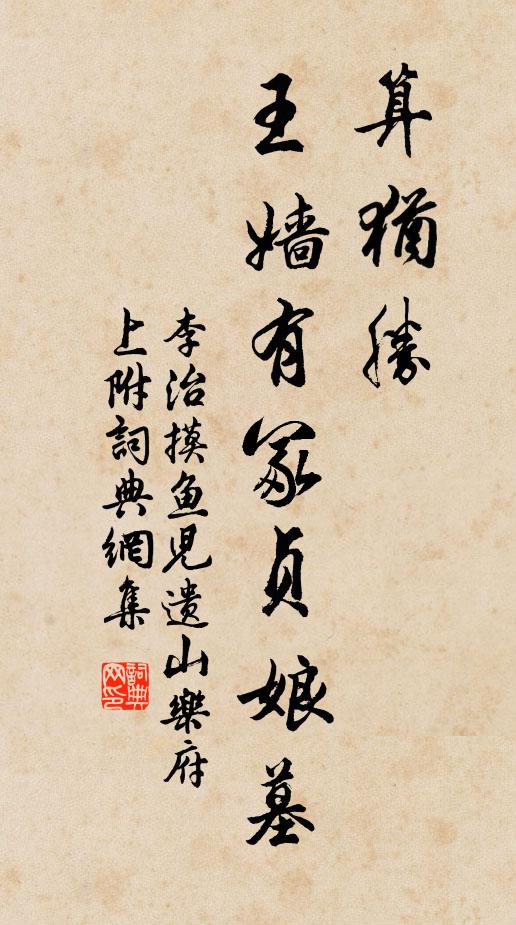 算猶勝
王嬙有冢貞娘墓
李治摸鱼児遺山樂府
上附詞典網集
詞典网印